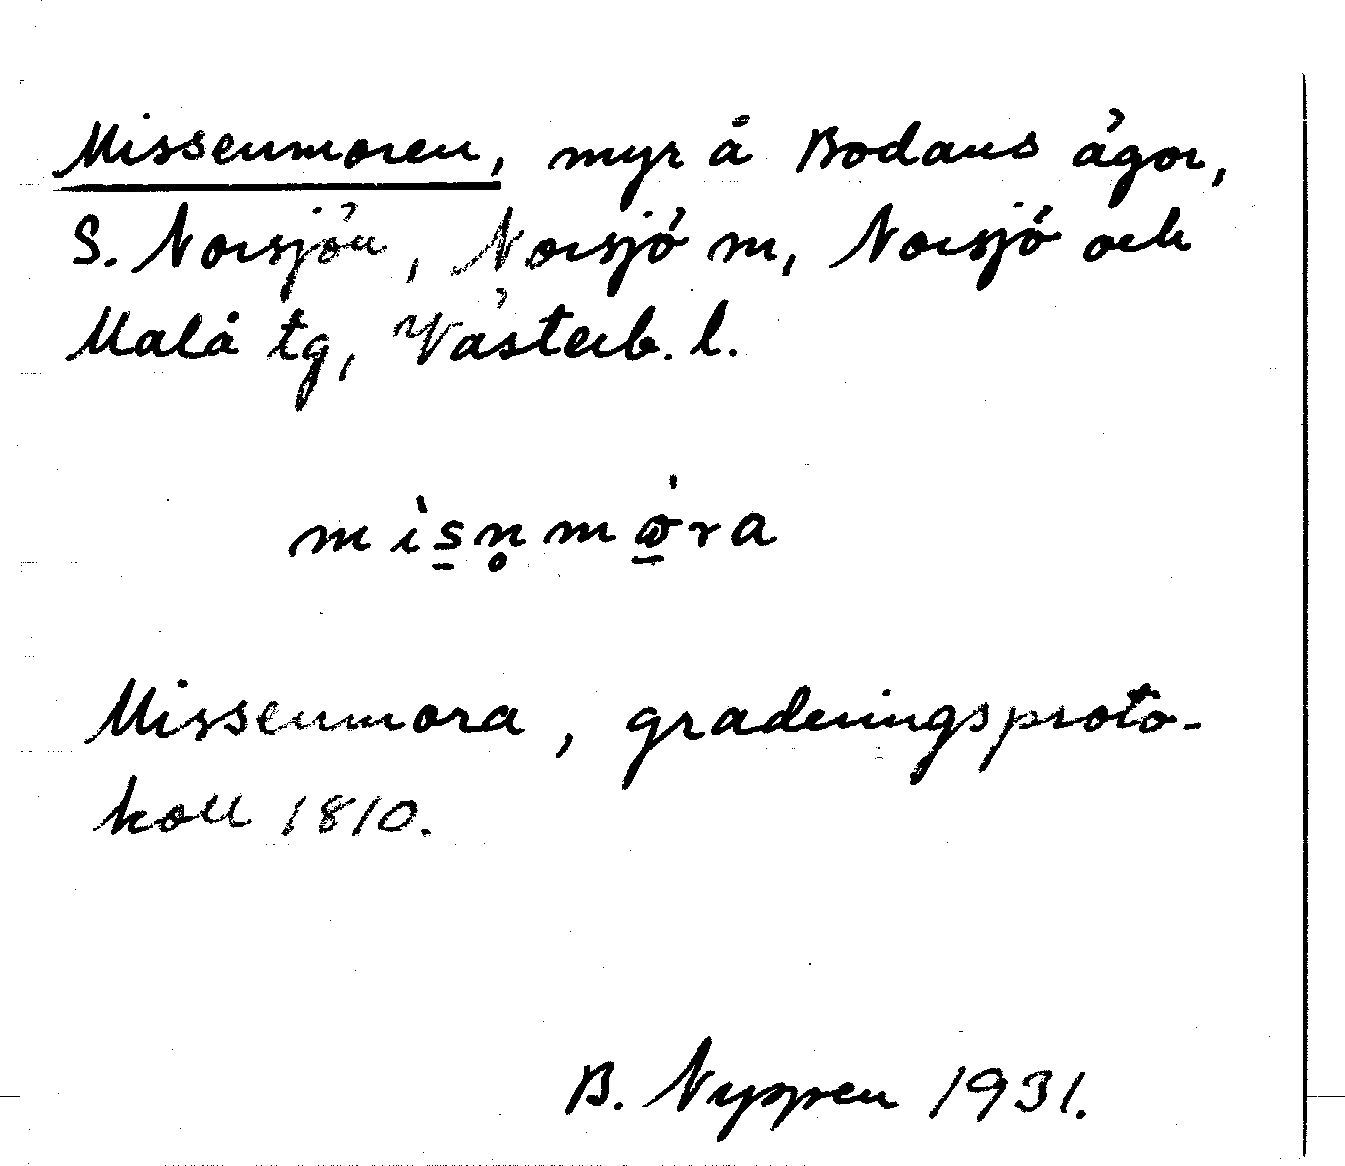 Missenmoren, myr å Bodans ägor,
S. Norsjön, Norsjö sn, Norsjö och
Malå tg, Västerb. l.
mìs̱n̥mώ̱ra
Missenmora, graderingsproto-
koll 1810.
B. Nygren 1931.